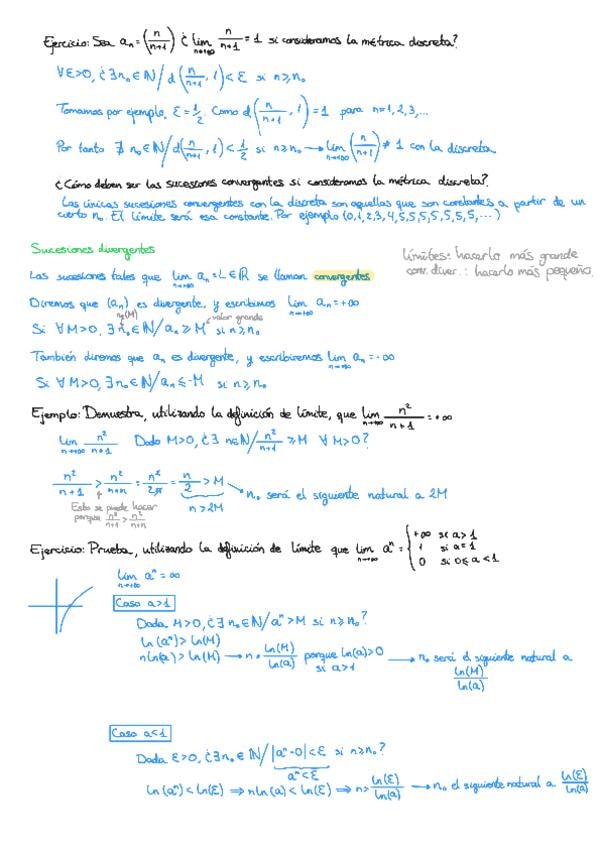 Ejercicio: Sea aₙ = (n/(n+1)) ¿ lim n→+∞ n/(n+1) = 1 si consideramos la métrica discreta?
∀ε>0, ¿∃n₀∈ℕ/ d(n/(n+1), 1) < ε si n≥n₀
Tomamos por ejemplo, ε = 1/2. Como d(n/(n+1), 1) = 1 para n=1,2,3,...
Por tanto ∄ n₀∈ℕ/ d(n/(n+1), 1) < 1/2 si n≥n₀ → lim n→+∞ (n/(n+1)) ≠ 1 con la discreta
¿Cómo deben ser las sucesiones convergentes si consideramos la métrica discreta?
Las únicas sucesiones convergentes con la discreta son aquellas que son constantes a partir de un
cierto n₀. El límite será esa constante. Por ejemplo (0,1,2,3,4,5,5,5,5,5,5,5,...)
Sucesiones divergentes
límites: hacerlo más grande
conv. diver.: hacerlo más pequeño.
Las sucesiones tales que lim n→+∞ aₙ = L ∈ ℝ se llaman convergentes
Diremos que (aₙ) es divergente, y escribimos lim n→+∞ aₙ = +∞
n₀(M)
valor grande
Si ∀M>0, ∃n₀∈ℕ/ aₙ ≥ M si n≥n₀
También diremos que aₙ es divergente, y escribiremos lim n→+∞ aₙ = -∞
Si ∀M>0, ∃n₀∈ℕ/ aₙ ≤ -M si n≥n₀
Ejemplo: Demuestra, utilizando la definición de límite, que lim n→+∞ n²/(n+1) = +∞
lim n→+∞ n²/(n+1) Dado M>0, ¿∃ n∈ℕ/ n²/(n+1) ≥ M ∀M>0?
n²/(n+1) > n²/(n+n) = n²/2n = n/2 > M
n > 2M
n₀ será el siguiente natural a 2M
Esto se puede hacer
porque n²/(n+1) > n²/(n+n)
Ejercicio: Prueba, utilizando la definición de límite que lim n→+∞ aⁿ = { +∞ si a>1
1 si a=1
0 si 0≤a<1
lim n→+∞ aⁿ = ∞
Caso a>1
Dada M>0, ¿∃n₀∈ℕ/ aⁿ > M si n≥n₀?
ln(aⁿ) > ln(M)
n ln(a) > ln(M) → n > ln(M)/ln(a) porque ln(a)>0 si a>1 → n₀ será el siguiente natural a ln(M)/ln(a)
Caso a<1
Dada ε>0, ¿∃n₀∈ℕ/ |aⁿ-0| < ε si n≥n₀?
aⁿ < ε
ln(aⁿ) < ln(ε) ⟹ n ln(a) < ln(ε) ⟹ n > ln(ε)/ln(a) → n₀ el siguiente natural a ln(ε)/ln(a)